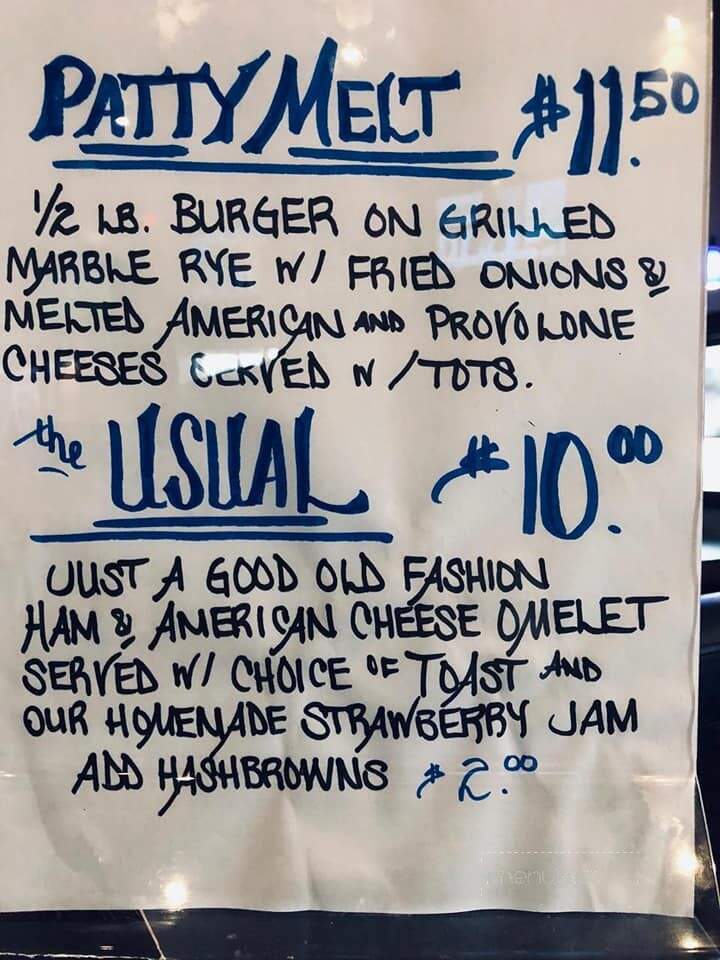 PATTY MELT $11.50
1/2 LB. BURGER ON GRILLED
MARBLE RYE W/ FRIED ONIONS &
MELTED AMERICAN AND PROVOLONE
CHEESES SERVED W/TOTS.
the USUAL $10.00
JUST A GOOD OLD FASHION
HAM & AMERICAN CHEESE OMELET
SERVED W/ CHOICE OF TOAST AND
OUR HOMEMADE STRAWBERRY JAM
ADD HASHBROWNS $2.00